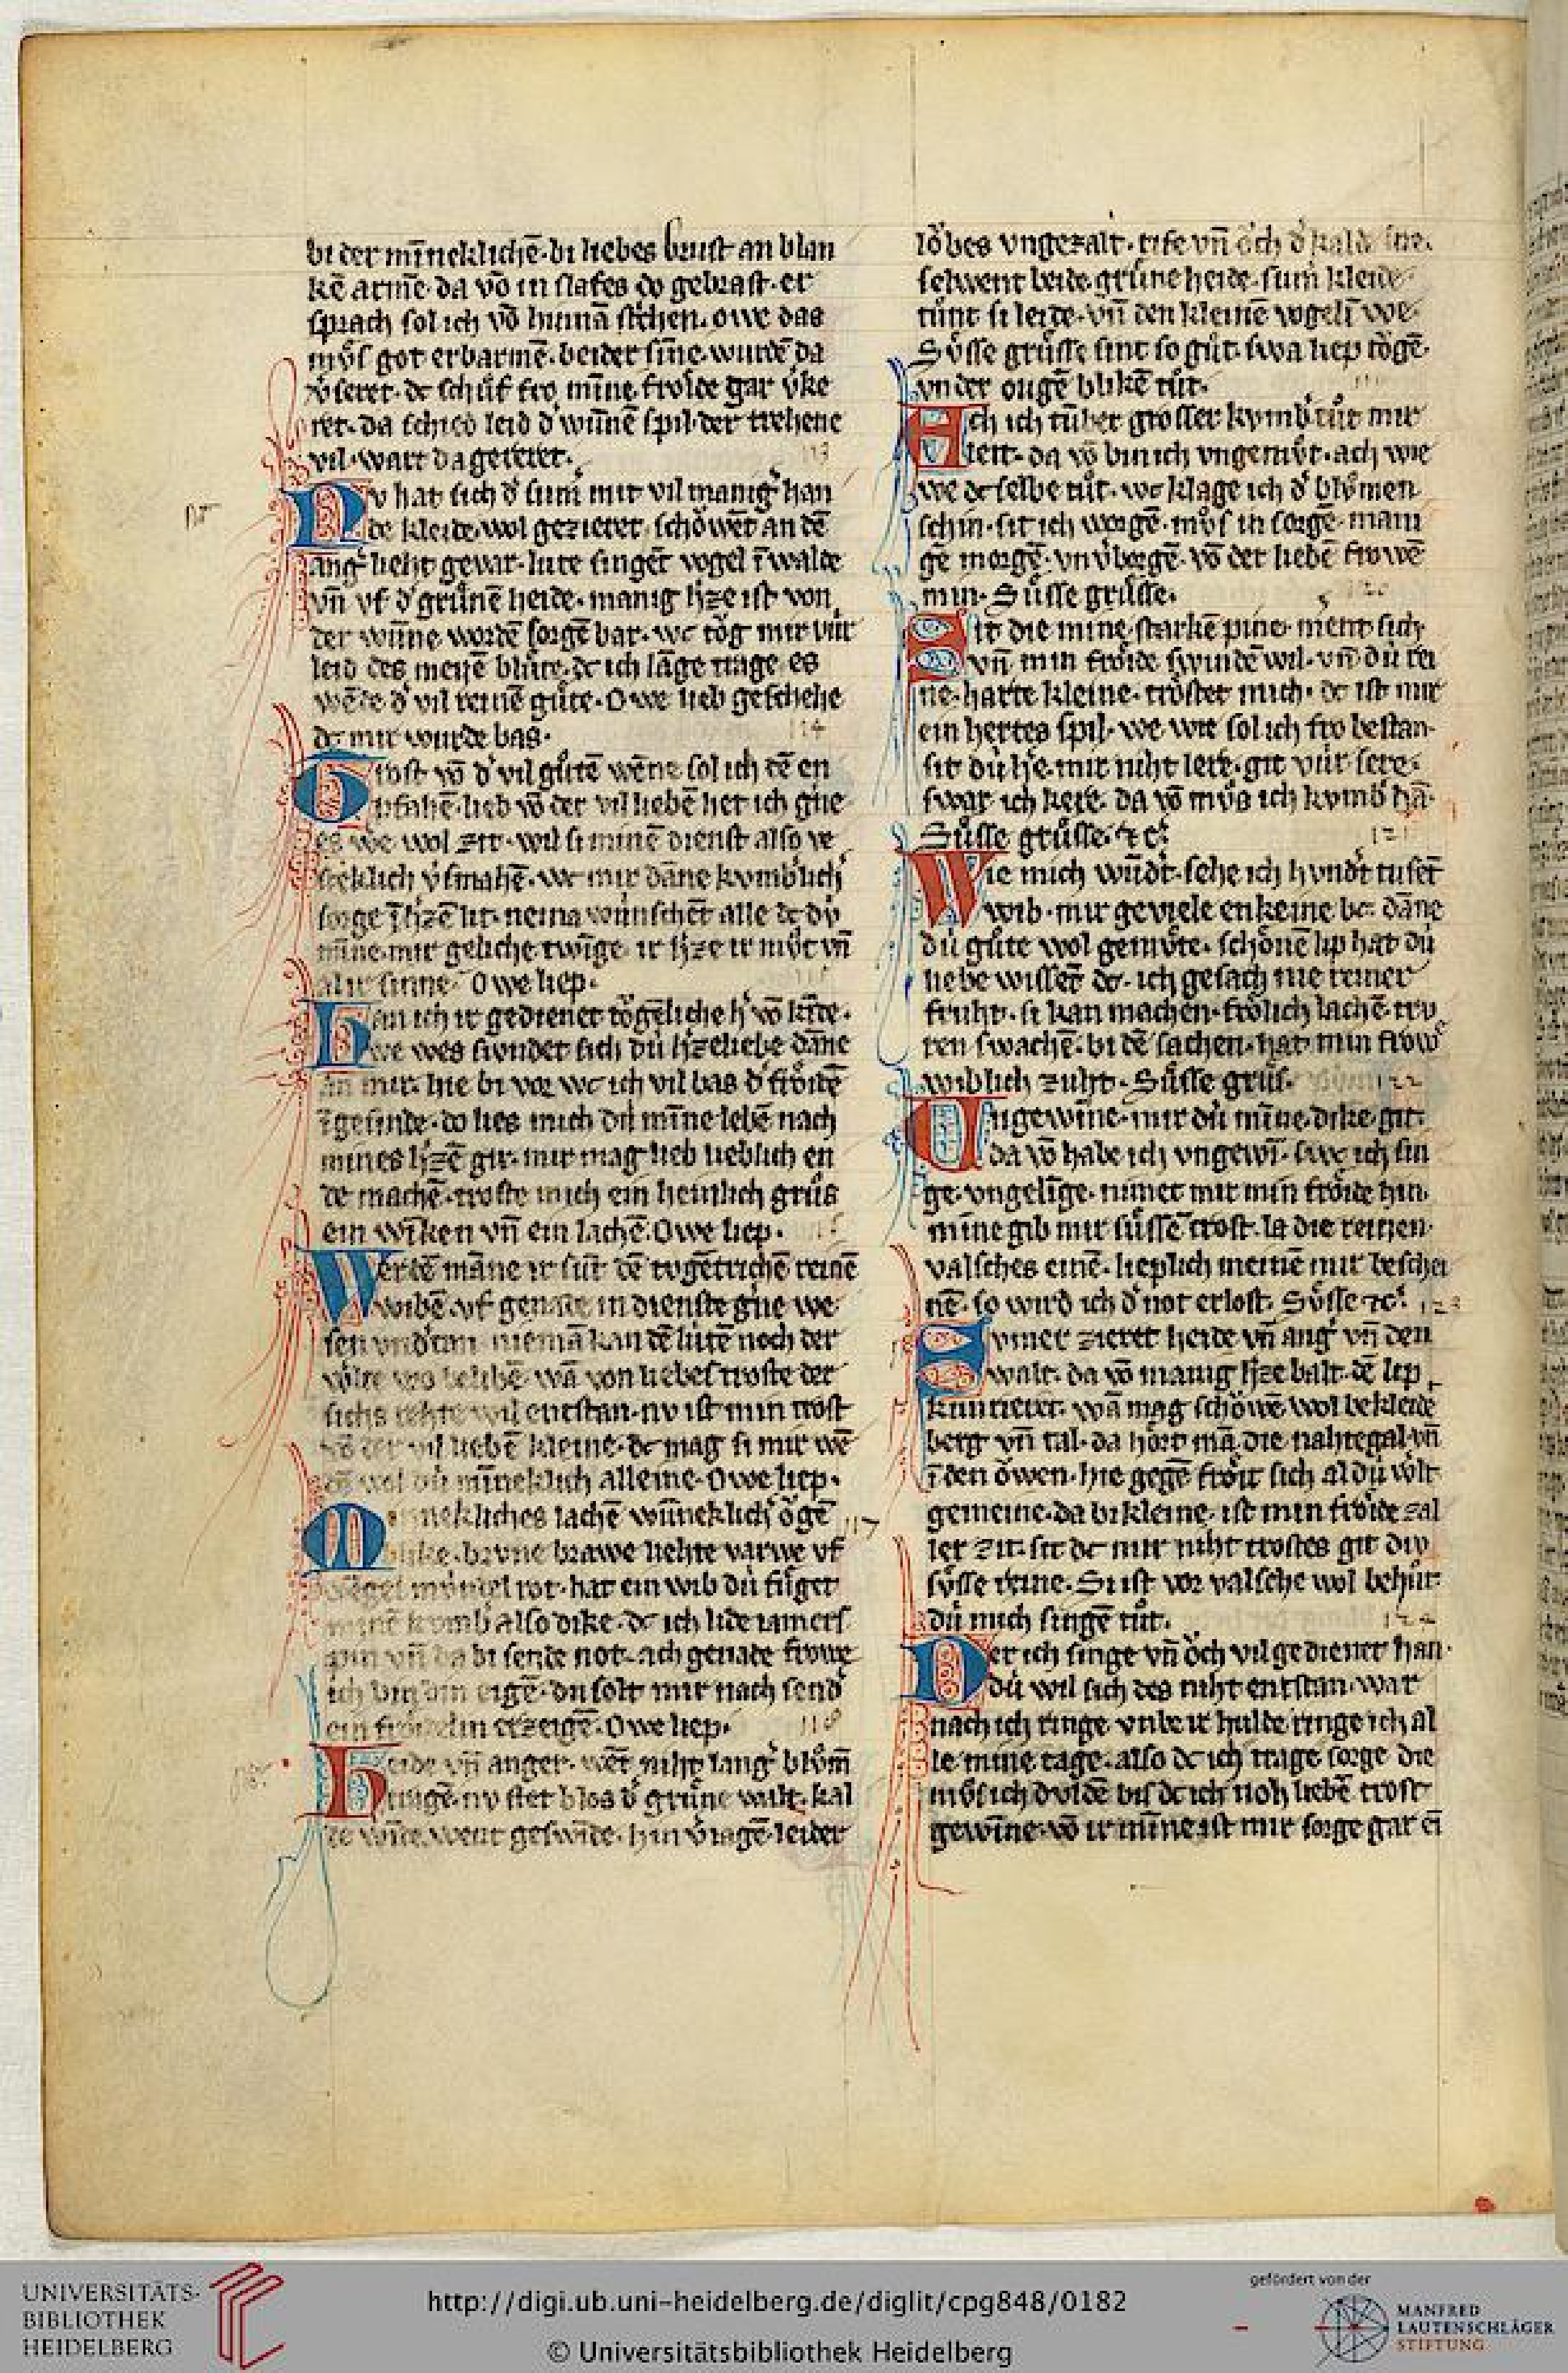 bi der mīneklichē. bi liebes brust an blan
kē armē. da vō in slafes do gebrast. er
sprach sol ich vō hinnā schēn. owe das
mv̊s got erbarmē. beider sīne. wurdē da
v̓seret. dc schůf fro mīne. froͤide gar v̓ke
ret. da schied leid d̓ wūnē spil. der trehene
vil. wart da gereret.
113
Nv hat sich d̓ sum̄ mit vil manig̓ han
de kleide. wol gezieret. schoͤwēt an dē
ang̓ lieht gevar. lute singēt vogel ī walde
vn̄ vf d̓ grůnē heide. manig h̓ze ist von
der wūne wordē sorgē bar. wc toͤg mir vúr
leid des meijē blůte. dc ich lāge trage es
wēde d̓ vil reinē gůte. Owe lieb geschehe
dc mir wurde bas.
114
Trost vō d̓ vil gůtē wēne sol ich dē en
pfahē. lieb vō der vil liebē het ich g̓ne
es we wol zit. wil si minē dienst also ve
steklich v̓smahē. wc mir dāne kvmb̓lich̓
sorge ī h̓zē lit. nema wúnschēt alle dc dv́
mīne. mir geliche twīge. ir h̓ze ir mv̊t vn̄
al ir sinne. Owe liep.
115
Han ich ir gedienet toͤgēliche h̓ vō kīde.
we wes svndet sich dú h̓zeliebe dāne
an mir. hie bi vor wc ich vil bas d̓ froͤidē
īgesinde. do lies mich dú mīne lebē nach
mines h̓zē gir. mir mag lieb lieblich en
de machē. troste mich ein heinlich grůs
ein wīken vn̄ ein lachē. Owe liep.
Werdē māne ir sút dē tvgētrichē reinē
wibē. vf genade in dienste g̓ne we
sen vnd̓tan. niemā kan dē lútē noch der
wēlte vro belibē. wā von liebes troste der
sichs rehte wil entstan. nv ist min trost
vō der vil liebē kleine. dc mag si mir wē
dē wol dú mīneklich alleine. Owe liep.
Mīnekliches lachē wūneklich̓ oͤgē
117
blike. brvne brawe liehte varwe vf
wēgel mv́ndel rot. hat ein wib dú fůget
minē kvmb̓ also dike. dc ich lide iamers
pin vn̄ da bi sende not. ach genade frowe
ich bin din eigē. du solt mir nach send̓
ein froͤidelin erzeigē. Owe liep.
118
Heide vn̄ anger. wēt niht lang̓ blv̊m̄
bringē. nv stet blos d̓ grůne walt. kal
te wīde. went geswīde. hin v̓iagē. leider
loͤbes vngezalt. rife vn̄ oͤch d̓ kalde sne.
selwent beide. grůne heide. sum̄ kleide
tůnt si leide. vn̄ den kleinē vogelī we.
Sv̊sse grůsse sint so gůt. swa liep toͤgē.
vnder ougē blikē tůt.
Ach ich tūber grosser kvmb̓ tůt mir
leit. da vō bin ich vngemv̊t. ach wie
we dc selbe tůt. wc klage ich d̓ blv̊men
schin. sit ich worgē. mv̊s in sorgē. mani
gē morgē. vnv̓borgē. vō der liebē frowē
min. Sůsse grůsse.
120
Sit die mine starkē pine. mērt sich
vn̄ min froͤide swindē wil. vn̄ dú rei
ne. harte kleine. troͤstet mich. dc ist mir
ein hertes spil. we wie sol ich fro bestan.
sit dú h̓e. mir niht lere. git vúr sere.
swar ich kere. da vō mv̊s ich kvmb̓ hā.
Sůsse grůsse. ⁊ c̓.
121
Wie mich wūdt. sehe ich hvndt tusēt
wib. mir geviele enkeine bc dāne
dú gůte wol gemv̊te. schoͤnē lip hat dú
liebe wissēt dc. ich gesach nie reiner
fruht. si kan machen. froͤlich lachē. trv
ren swachē. bi dē sachen. hat min frow̓
wiblich zuht. Sůsse grůs.
122
Vngewīne. mir dú mīne. dike. git.
da vō habe ich vngewī. swc ich sin
ge. vngelīge. nimet mir min froͤide hin.
mīne gib mir sůssē trost. la die reinen.
valsches einē. lieplich meinē mir beschei
nē. so wird ich d̓ not erlost. Sv̊sse ⁊c̓.
123
Svmer zieret heide vn̄ ang̓ vn̄ den
walt. da vō manig h̓ze balt. dē liep
kun tieret. wā mag schoͤwē wol bekleide
berg vn̄ tal. da hoͤrt mā die nahtegal. vn̄
ī den oͤwen. hie gegē froͤit sich al dú wēlt
gemeine. da bi kleine. ist min froͤide zal
ler zit. sit dc mir niht trostes git div
sv̊sse reine. Si ist vor valsche wol behůt.
dú mich singē tůt.
124
Der ich singe vn̄ oͤch vil gedienet han.
dú wil sich des niht entstan. war
nach ich ringe. vnbe ir hulde ringe ich al
le mine tage. also dc ich trage sorge die
mv̊s ich dvldē bis dc ich noh liebē trost
gewīne. vō ir mīne ist mir sorge gar ei
UNIVERSITÄTS-
BIBLIOTHEK
HEIDELBERG
http://digi.ub.uni-heidelberg.de/diglit/cpg848/0182
© Universitätsbibliothek Heidelberg
gefördert von der
MANFRED
LAUTENSCHLÄGER
STIFTUNG